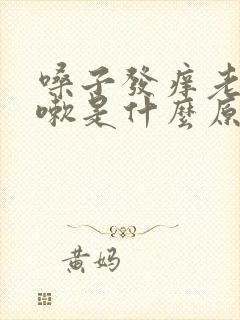 嗓子發癢老
嗽是什麼原
黃妈